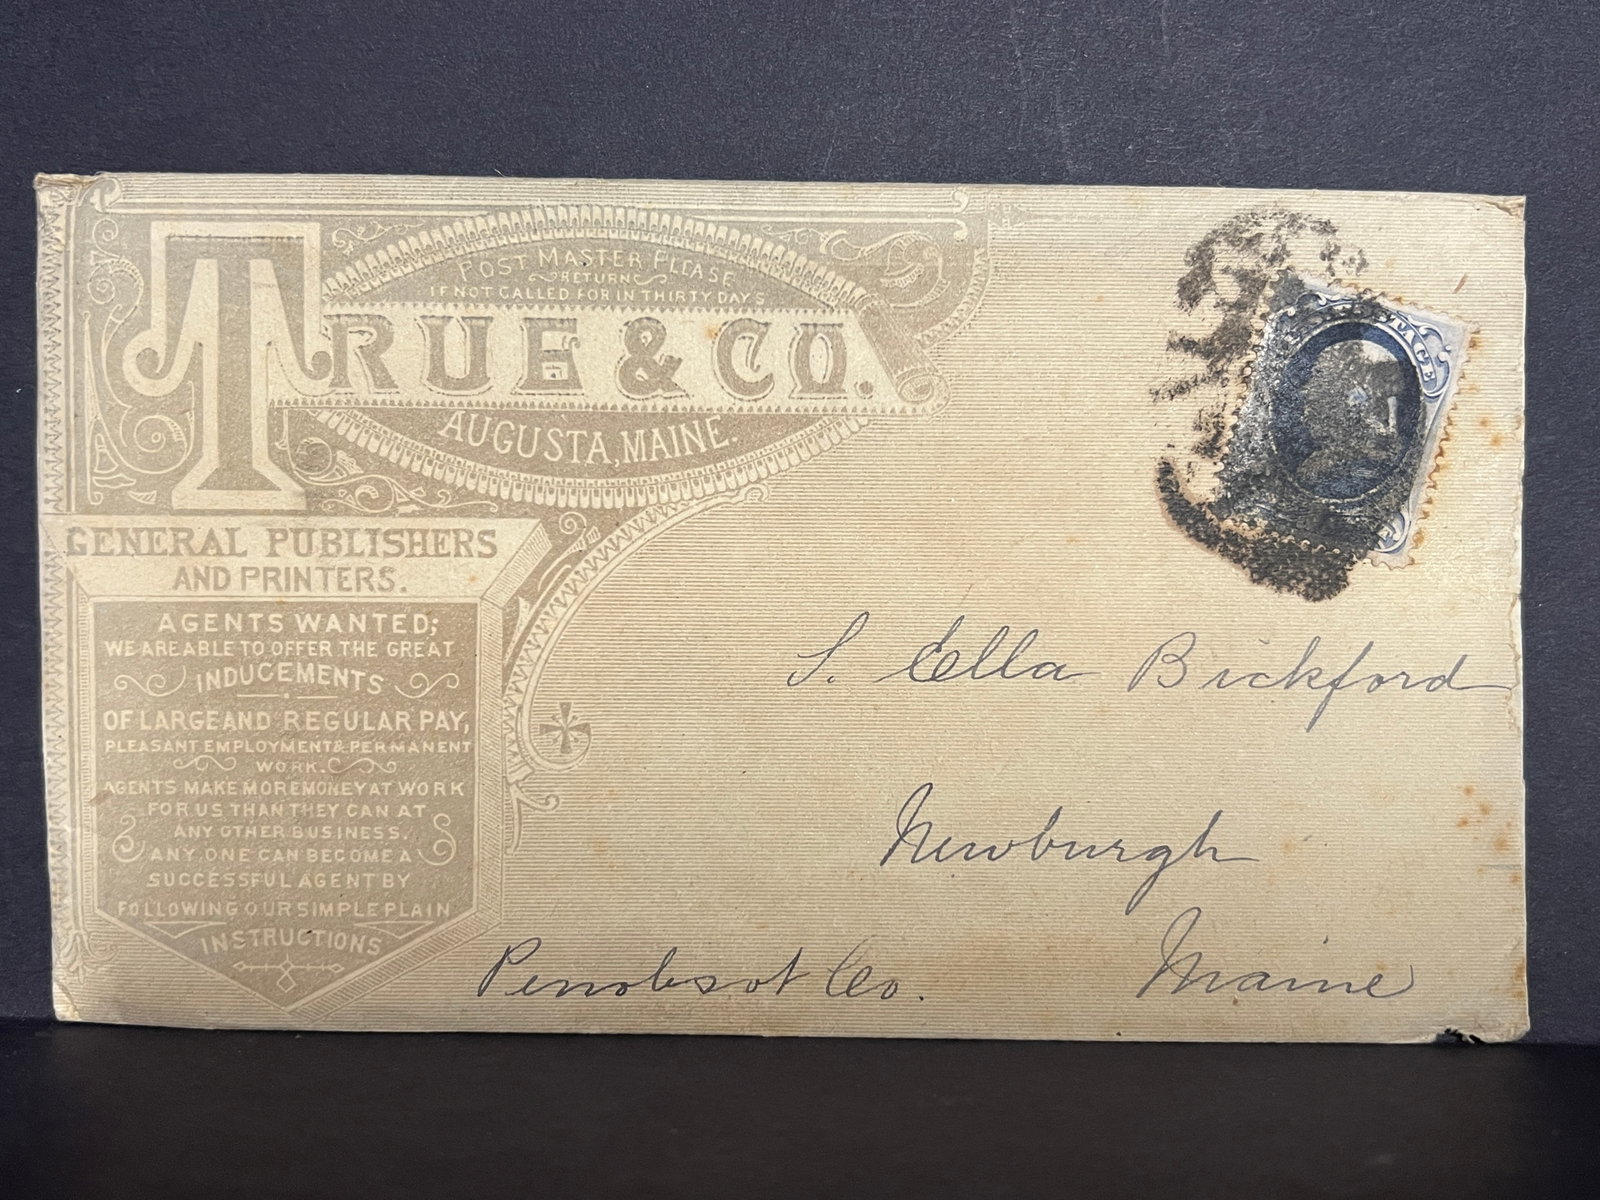 POST MASTER PLEASE
RETURN
IF NOT CALLED FOR IN THIRTY DAYS
TRUE & CO.
AUGUSTA, MAINE.
GENERAL PUBLISHERS
AND PRINTERS.
AGENTS WANTED;
WE ARE ABLE TO OFFER THE GREAT
INDUCEMENTS
OF LARGE AND REGULAR PAY,
PLEASANT EMPLOYMENT & PERMANENT
WORK.
AGENTS MAKE MORE MONEY AT WORK
FOR US THAN THEY CAN AT
ANY OTHER BUSINESS.
ANY ONE CAN BECOME A
SUCCESSFUL AGENT BY
FOLLOWING OUR SIMPLE PLAIN
INSTRUCTIONS
S. Ella Bickford
Newburgh
Penobsot Co. Maine